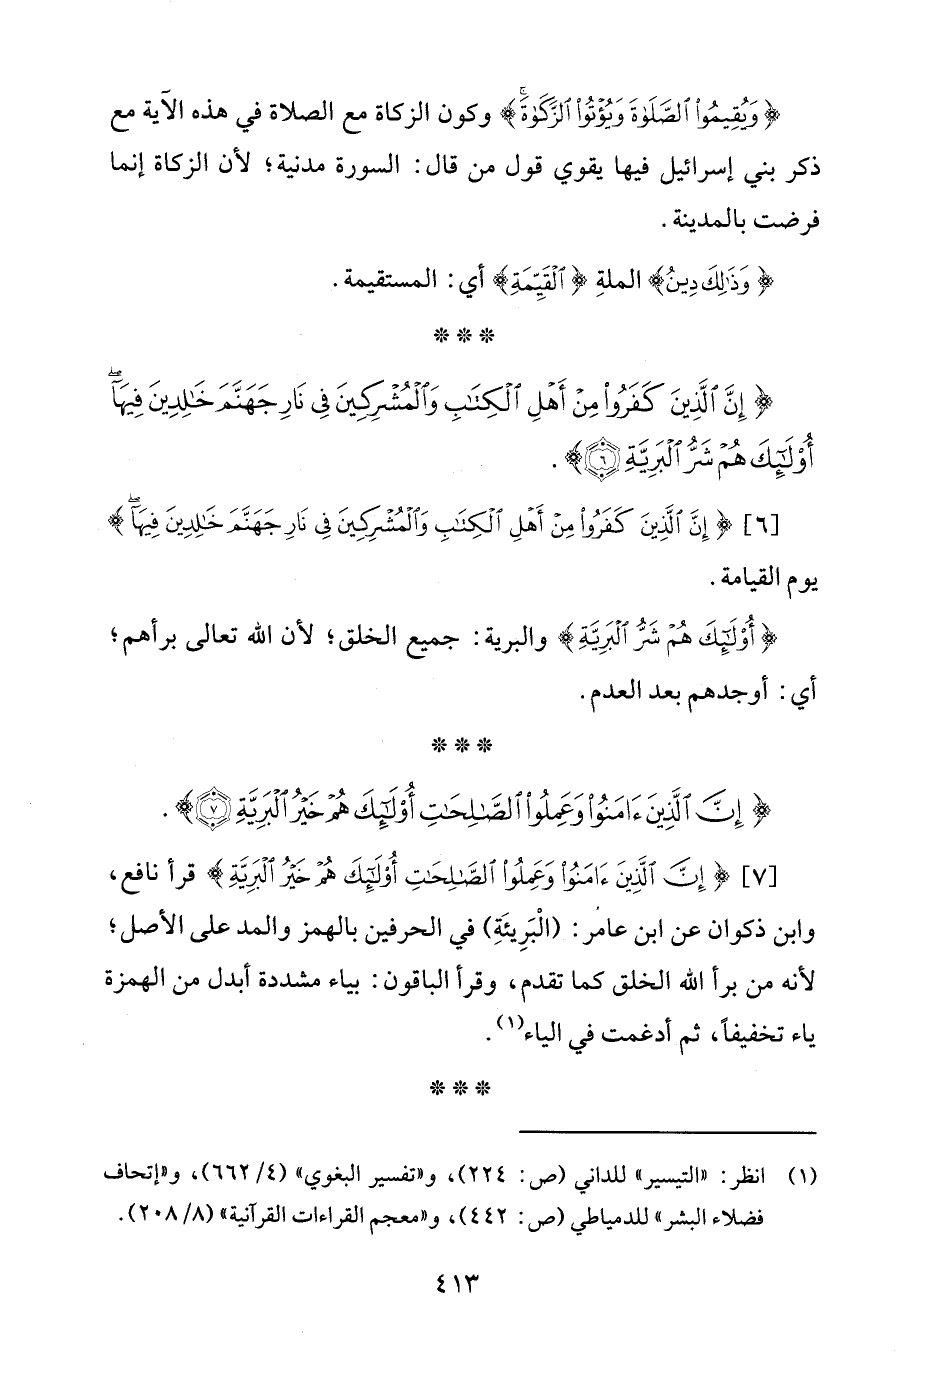 ﴿وَيُقِيمُوا۟ ٱلصَّلَوٰةَ وَيُؤْتُوا۟ ٱلزَّكَوٰةَ ۚ﴾ وكون الزكاة مع الصلاة في هذه الآية مع
ذكر بني إسرائيل فيها يقوي قول من قال: السورة مدنية؛ لأن الزكاة إنما
فرضت بالمدينة.
﴿وَذَٰلِكَ دِينُ﴾ الملةِ ﴿ٱلْقَيِّمَةِ﴾ أي: المستقيمة.
* * *
﴿إِنَّ ٱلَّذِينَ كَفَرُوا۟ مِنْ أَهْلِ ٱلْكِتَٰبِ وَٱلْمُشْرِكِينَ فِى نَارِ جَهَنَّمَ خَٰلِدِينَ فِيهَآ ۖ
أُو۟لَٰٓئِكَ هُمْ شَرُّ ٱلْبَرِيَّةِ ٦﴾.
[٦] ﴿إِنَّ ٱلَّذِينَ كَفَرُوا۟ مِنْ أَهْلِ ٱلْكِتَٰبِ وَٱلْمُشْرِكِينَ فِى نَارِ جَهَنَّمَ خَٰلِدِينَ فِيهَآ ۖ﴾
يوم القيامة.
﴿أُو۟لَٰٓئِكَ هُمْ شَرُّ ٱلْبَرِيَّةِ﴾ والبرية: جميع الخلق؛ لأن الله تعالى برأهم؛
أي: أوجدهم بعد العدم.
* * *
﴿إِنَّ ٱلَّذِينَ ءَامَنُوا۟ وَعَمِلُوا۟ ٱلصَّٰلِحَٰتِ أُو۟لَٰٓئِكَ هُمْ خَيْرُ ٱلْبَرِيَّةِ ٧﴾.
[٧] ﴿إِنَّ ٱلَّذِينَ ءَامَنُوا۟ وَعَمِلُوا۟ ٱلصَّٰلِحَٰتِ أُو۟لَٰٓئِكَ هُمْ خَيْرُ ٱلْبَرِيَّةِ﴾ قرأ نافع،
وابن ذكوان عن ابن عامر: (الْبَرِيئَةِ) في الحرفين بالهمز والمد على الأصل؛
لأنه من برأ الله الخلق كما تقدم، وقرأ الباقون: بياء مشددة أبدل من الهمزة
ياء تخفيفاً، ثم أدغمت في الياء(١).
* * *
(١) انظر: «التيسير» للداني (ص: ٢٢٤)، و«تفسير البغوي» (٤/ ٦٦٢)، و«إتحاف
فضلاء البشر» للدمياطي (ص: ٤٤٢)، و«معجم القراءات القرآنية» (٨/ ٢٠٨).
٤١٣